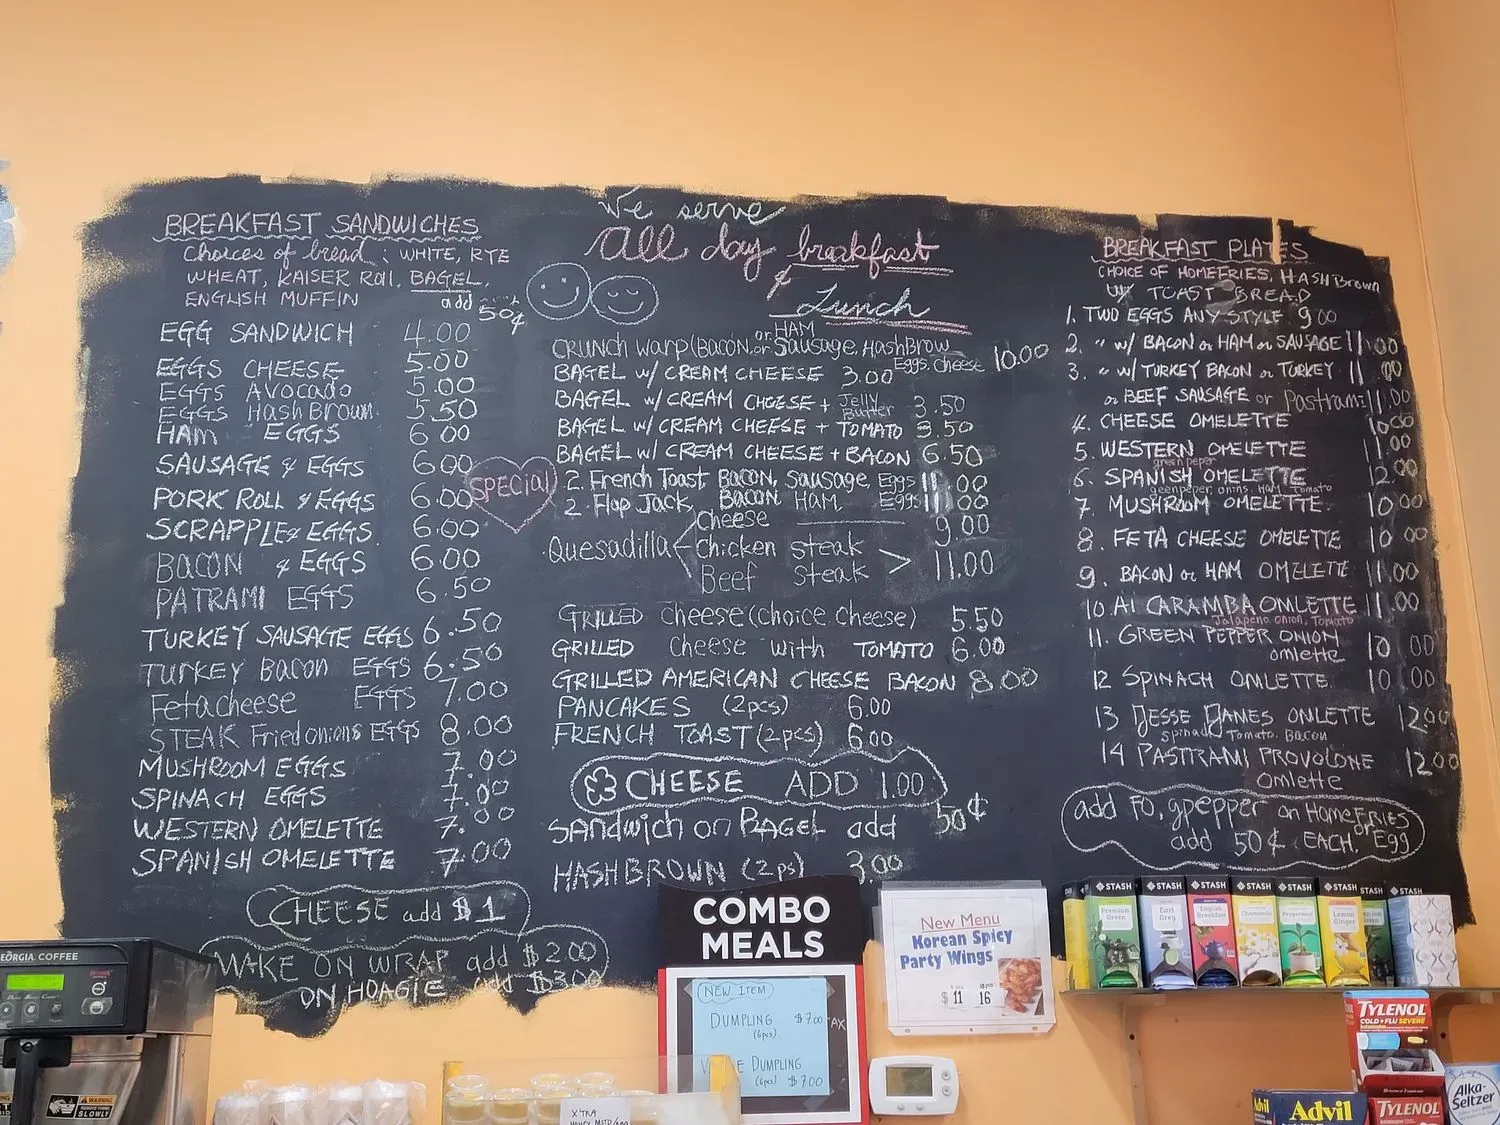 BREAKFAST SANDWICHES
Choices of bread : WHITE, RYE
WHEAT, KAISER ROll, BAGEL,
ENGLISH MUFFIN add 50¢
EGG SANDWICH 4.00
EGGS CHEESE 5.00
EGGS AVOCADO 5.00
EGGS Hash Brown 5.50
HAM EGGS 6.00
SAUSAGE & EGGS 6.00
PORK ROLL & EGGS 6.00
SCRAPPLE & EGGS 6.00
BACON & EGGS 6.00
PATRAMI EGGS 6.50
TURKEY SAUSAGE EGGS 6.50
TURKEY BACON EGGS 6.50
Feta cheese EGGS 7.00
STEAK Fried onions EGGS 8.00
MUSHROOM EGGS 7.00
SPINACH EGGS 7.00
WESTERN OMELETTE 7.00
SPANISH OMELETTE 7.00
CHEESE add $1
MAKE ON WRAP add $2.00
ON HOAGIE add $3.00
We serve
All day brakfast
&
Lunch
SPECIAl
CRUNCH WARP (BACON or HAM or Sausage, HashBrow
Eggs. Cheese 10.00
BAGEL w/ CREAM CHEESE 3.00
BAGEL w/ CREAM CHEESE + Jelly Butter 3.50
BAGEL w/ CREAM CHEESE + TOMATO 3.50
BAGEL w/ CREAM CHEESE + BACON 6.50
2. French Toast, BACON, Sausage, Eggs 11.00
2. Flap Jack, BACON HAM, Eggs 11.00
Quesadilla < Cheese 9.00
Chicken steak
Beef steak > 11.00
GRILLED Cheese (choice cheese) 5.50
GRILLED Cheese with TOMATO 6.00
GRILLED AMERICAN CHEESE BACON 8.00
PANCAKES (2pcs) 6.00
FRENCH TOAST (2pcs) 6.00
CHEESE ADD 1.00
Sandwich on BAGEL add 50¢
HASHBROWN (2ps) 3.00
BREAKFAST PLATES
CHOICE OF HOMEFRIES, HASHBrown
W/ TOAST BREAD
1. TWO EGGS ANY STYLE 9 00
2. " w/ BACON or HAM or SAUSAGE 11 00
3. " w/ TURKEY BACON or TURKEY 11 00
or BEEF SAUSAGE or Pastrami 11.00
4. CHEESE OMELETTE 10 00
5. WESTERN OMELETTE 11.00
green peper
6. SPANISH OMELETTE 12.00
greenpeper, onins, Ham, Tomato
7. MUSHROOM OMELETTE. 10 00
8. FETA CHEESE OMELETTE 10 00
9. BACON or HAM OMELETTE 11.00
10 AI CARAMBA OMLETTE 11.00
Jalapeno, onion, Tomato
11. GREEN PEPPER ONION 10 00
omlette
12 SPINACH OMLETTE. 10 00
13 JESSE JAMES OMLETTE 12.00
spinad Tomato. Bacon
14 PASTRAMI PROVOLONE 12.00
omlette
add FO, gpepper on HOMEFRIES
or Egg
add 50¢ EACH.
COMBO
MEALS
NEW ITEM
DUMPLING $7.00
(6pcs)
DUMPLING
(6pcs) $7.00
TAX
New Menu
Korean Spicy
Party Wings
$ 11 16
STASH
Premium
Green
STASH
Earl
Grey
STASH
English
Breakfast
STASH
Chamomile
STASH
Peppermint
STASH
Lemon
Ginger
STASH
STASH
TYLENOL
COLD + FLU SEVERE
TYLENOL
Advil
Advil
Alka-
Seltzer
GEORGIA COFFEE
WARNING
REMOVE FUNNEL
SLOWLY
X'TRA